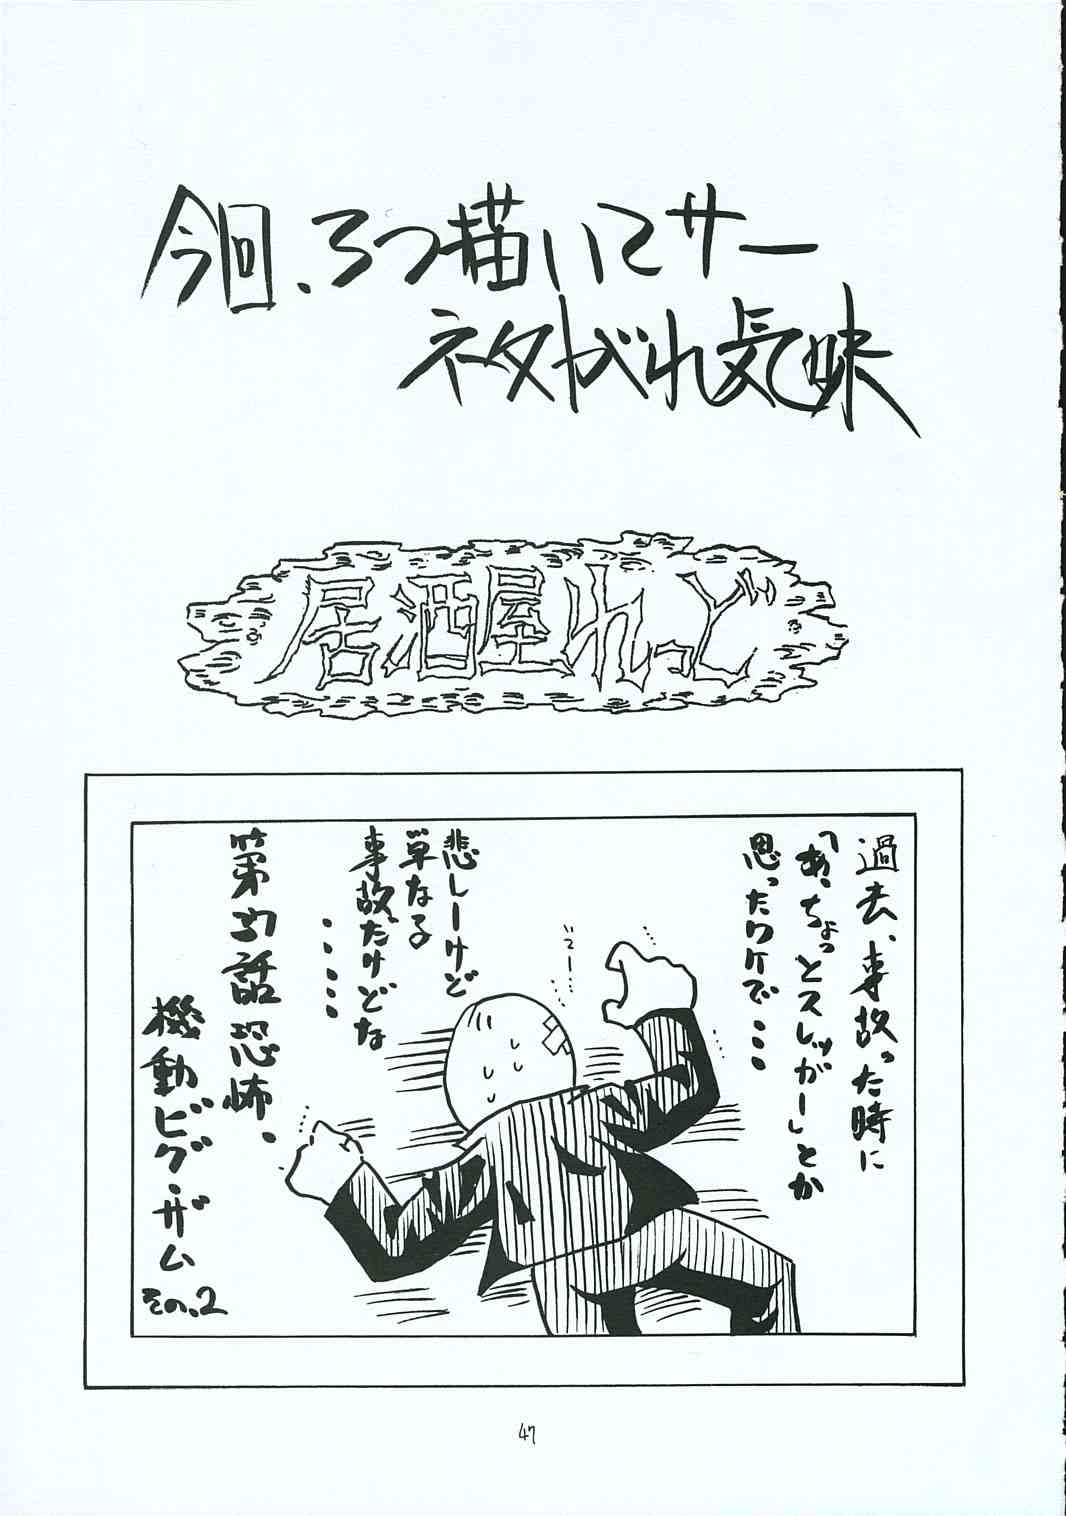 今回、3つ描いてサー
ネタがれ気味
居酒屋れっど
過去、事故った時に
「あ、ちょっとスレッガー」とか
思ったワケで・・・
じてー…
悲しーけど
単なる
事故だけどな
・・・・・
第37話 恐怖、
機動ビグ・ザム
その、2
47